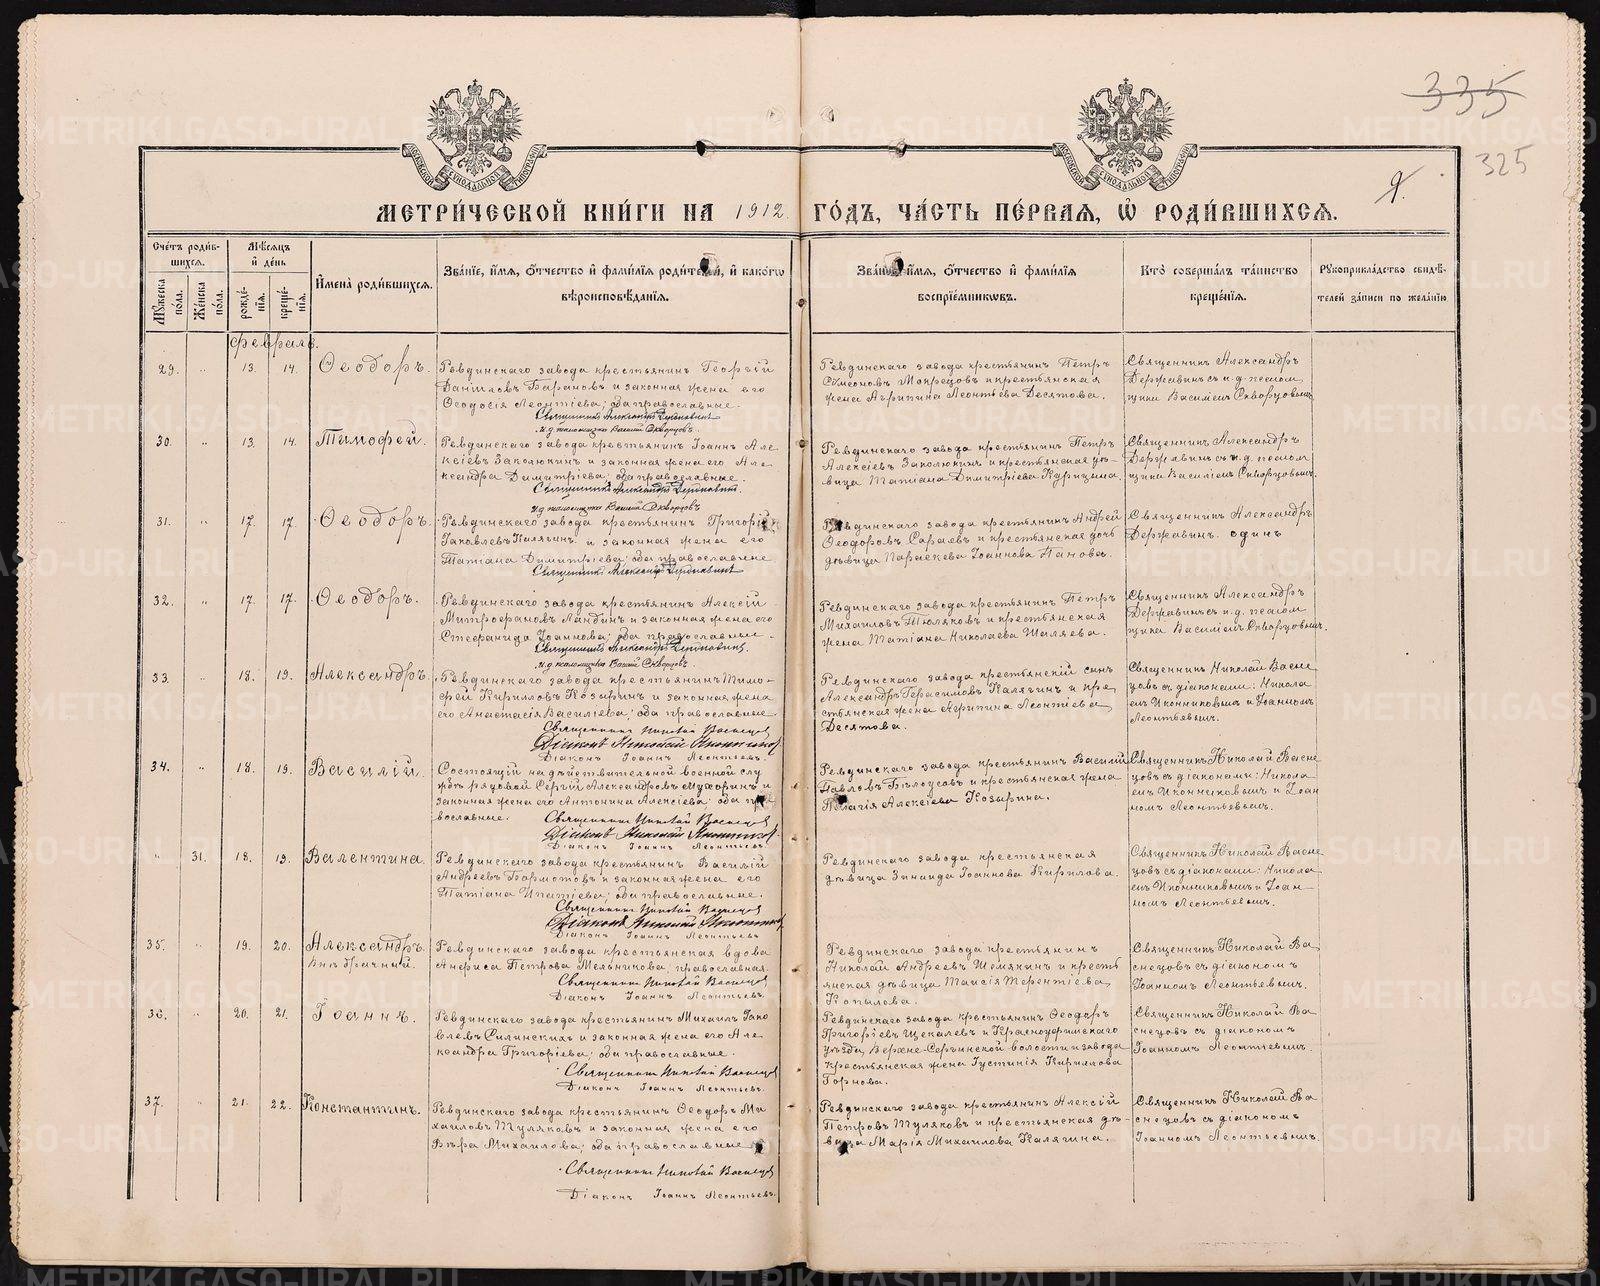 335
325
9.
МЕТРИ́ЧЕСКОЙ КНИ́ГИ НА 1912 ГО́ДЪ, ЧА́СТЬ ПЕ́РВАЯ, Ѽ РОДИ́ВШИХСЯ.
Сче́тъ роди́в-
шихся.
Му́жеска по́ла.
Же́нска по́ла.
Мѣ́сяцъ и де́нь
рожде́нїя.
креще́нїя.
И҆мена̀ роди́вшихся.
Зва́нїе, и҆́мя, о҆́тчество и҆ фами́лїя роди́телей, и҆ како́гѡ
вѣроисповѣ́данїя.
Зва́нїе, и҆́мя, о҆́тчество и҆ фами́лїя
воспрїе́мникѡвъ.
Кто̀ соверша́лъ та́инство
креще́нїя.
Рꙋкоприкла́дство свидѣ́-
телей за́писи по жела́нїю
февраль.
29. „ 13. 14. Ѳеодоръ.
Ревдинскаго завода крестьянинъ Георгій
Даниловъ Барановъ и законная жена его
Ѳеодосія Леонтіева; оба православные.
Священникъ Александръ Державинъ
и.д. псаломщика Василій Скворцовъ.
Ревдинскаго завода крестьянинъ Петръ
Симеоновъ Мокрецовъ и крестьянская
жена Агрипина Леонтіева Десятова.
Священникъ Александръ
Державинъ съ и.д. псалом
щика Василіемъ Скворцовымъ
30. „ 13. 14. Тимофей.
Ревдинскаго завода крестьянинъ Іоаннъ Але
ксіевъ Заколюкинъ и законная жена его Але
ксандра Димитріева; оба православные.
Священникъ Александръ Державинъ.
и.д. псаломщика Василій Скворцовъ
Ревдинскаго завода крестьянинъ Петръ
Алексіевъ Заколюкинъ и крестьянская дѣ-
вица Татіана Димитріева Курицына
Священникъ Александръ
Державинъ съ и.д. псалом
щика Василіемъ Скворцовымъ
31. „ 17. 17. Ѳеодоръ.
Ревдинскаго завода крестьянинъ Григорій
Іаковлевъ Калягинъ и законная жена его
Татіана Димитріева; оба православные
Священникъ Александръ Державинъ
Ревдинскаго завода крестьянинъ Андрей
Ѳеодоровъ Сараевъ и крестьянская дочь
дѣвица Параскева Іоаннова Панова.
Священникъ Александръ
Державинъ. одинъ
32. „ 17. 17. Ѳеодоръ.
Ревдинскаго завода крестьянинъ Алексій
Митрофановъ Ландинъ и законная жена его
Стефанида Іоаннова; оба православные.
Священникъ Александръ Державинъ.
и.д. псаломщика Василій Скворцовъ.
Ревдинскаго завода крестьянинъ Петръ
Михаиловъ Тюляковъ и крестьянская
жена Татіана Николаева Шаляева.
Священникъ Александръ
Державинъ съ и.д. псалом
щика Василіемъ Скворцовымъ.
33. „ 18. 19. Александръ.
Ревдинскаго завода крестьянинъ Тимо-
фей Кирилловъ Козыринъ и законная жена
его Анастасія Василіева; оба православные.
Священникъ Николай Васнецовъ
Діаконъ Николай Иконниковъ
Діаконъ Іоаннъ Леонтьевъ.
Ревдинскаго завода крестьянскій сынъ
Александръ Герасимовъ Калягинъ и кре
стьянская жена Агрипина Леонтіева
Десятова.
Священникъ Николай Васне
цовъ съ діаконами: Никола
емъ Иконниковымъ и Іоанномъ
Леонтьевымъ.
34. „ 18. 19. Василій.
Состоящій на дѣйствительной военной слу
жбѣ рядовой Сергій Александровъ Мухоринъ и
законная жена его Антонина Алексіева; оба пра
вославные. Священникъ Николай Васнецовъ
Діаконъ Николай Иконниковъ
Діаконъ Іоаннъ Леонтьевъ.
Ревдинскаго завода крестьянинъ Василій
Павловъ Бѣлоусовъ и крестьянская жена
Пелагія Алексіева Козырина.
Священникъ Николай Васне
цовъ съ діаконами: Никола
емъ Иконниковымъ и Іоан
номъ Леонтьевымъ.
„ 31. 18. 19. Валентина.
Ревдинскаго завода крестьянинъ Василій
Андреевъ Бормотовъ и законная жена его
Татіана Ипатіева; оба православные.
Священникъ Николай Васнецовъ
Діаконъ Николай Иконниковъ
Діаконъ Іоаннъ Леонтьевъ
Ревдинскаго завода крестьянская
дѣвица Зинаида Іоаннова Кирилова.
Священникъ Николай Васне
цовъ съ діаконами: Никола
емъ Иконниковымъ и Іоан
номъ Леонтьевымъ.
35. „ 19. 20. Александръ.
Внѣбрачный.
Ревдинскаго завода крестьянская вдова
Анфиса Петрова Мельникова; православная.
Священникъ Николай Васнецовъ
Діаконъ Іоаннъ Леонтьевъ.
Ревдинскаго завода крестьянинъ
Николай Андреевъ Шемякинъ и кресть
янская дѣвица Таисія Терентіева
Копылова.
Священникъ Николай Ва
снецовъ съ діакономъ
Іоанномъ Леонтьевымъ.
36. „ 20. 21. Іоаннъ.
Ревдинскаго завода крестьянинъ Михаилъ Іако
влевъ Силинскихъ и законная жена его Але
ксандра Григоріева; оба православные.
Священникъ Николай Васнецовъ
Діаконъ Іоаннъ Леонтьевъ.
Ревдинскаго завода крестьянинъ Ѳеодоръ
Григоріевъ Щекалевъ и Красноуфимскаго
уѣзда, Верхне-Сергинской волости и завода
крестьянская жена Іустинія Кириллова
Горнова.
Священникъ Николай Ва
снецовъ съ діакономъ
Іоанномъ Леонтьевымъ.
37. „ 21. 22. Константинъ.
Ревдинскаго завода крестьянинъ Ѳеодоръ Ми
хаиловъ Туляковъ и законная жена его
Вѣра Михаилова; оба православные
Священникъ Николай Васнецовъ
Діаконъ Іоаннъ Леонтьевъ.
Ревдинскаго завода крестьянинъ Алексій
Петровъ Туляковъ и крестьянская дѣ-
вица Марія Михаилова Калягина.
Священникъ Николай Ва
снецовъ съ діакономъ
Іоанномъ Леонтьевымъ.
METRIKI.GASO-URAL.RU